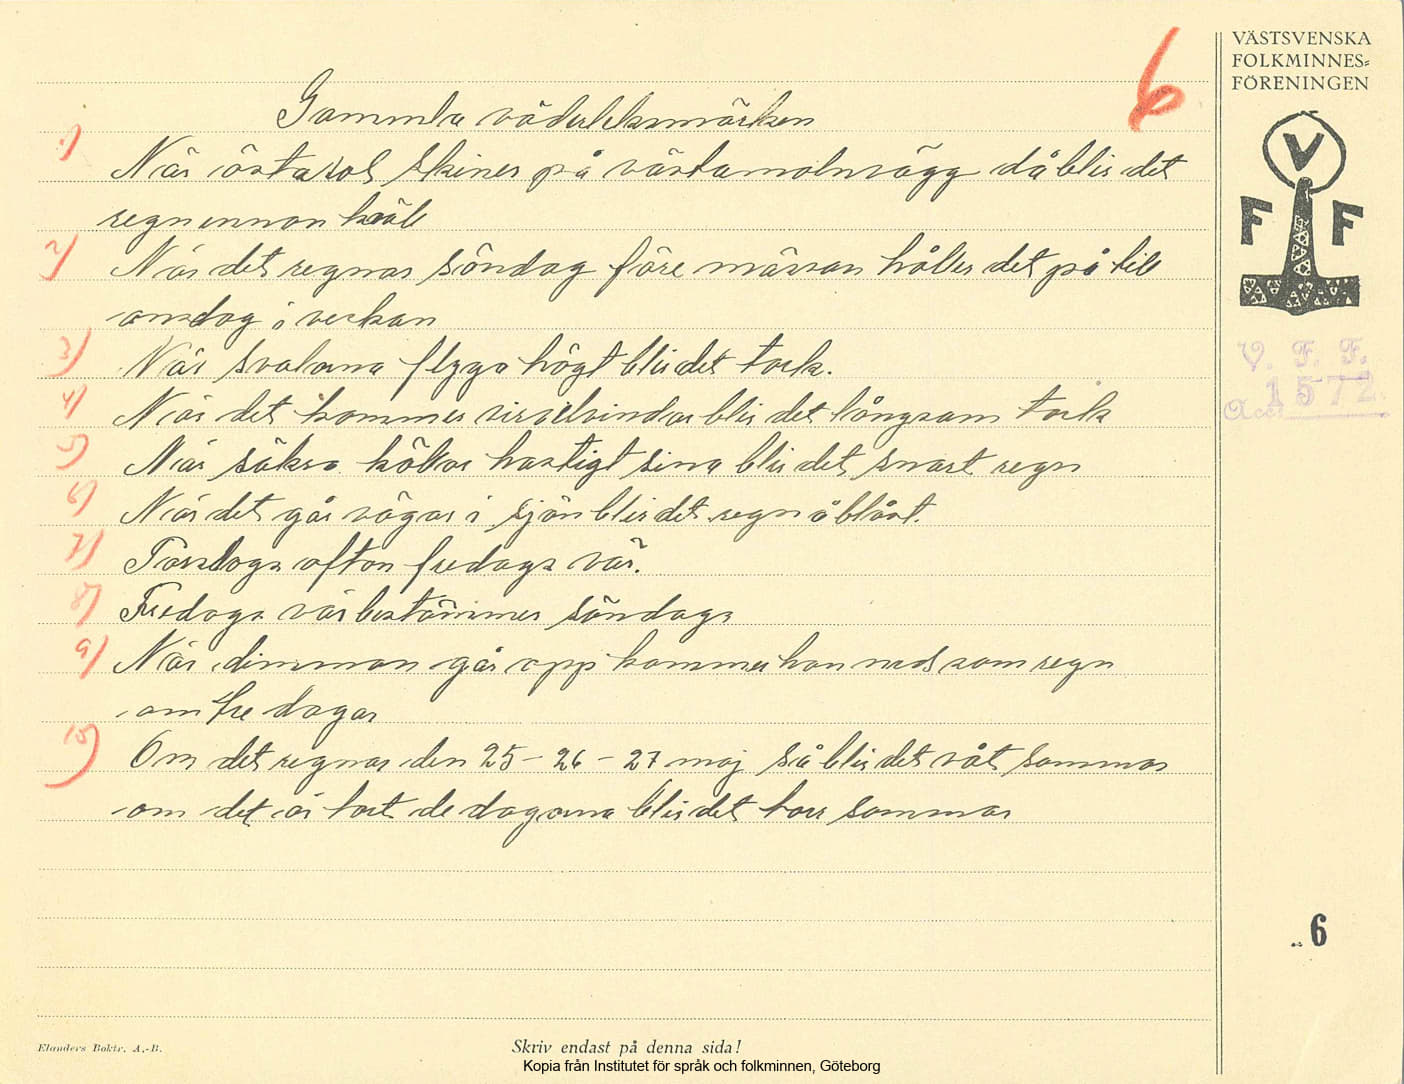 6
VÄSTSVENSKA
FOLKMINNES=
FÖRENINGEN
V
F F
V. F. F.
Acc. 1572.
Gammla väderleksmärken
1) När östasol skiner på västamolnvägg då blir det
regn innan kväll
2) När det regnar söndag före mässan håller det på till
onsdag i veckan
3) När svalorna flyga högt blir det tork.
4) När det kommer virvelvindar blir det långsam tork
5) När säkra källor hastigt sina blir det snart regn
6) När det går vågar i sjön blir det regn å blåst.
7) Torsdags afton fredags vär.
8) Fredags vär bestämmer söndags
9) När dimman går opp kommer han ned som regn
om tre dagar
10) Om det regnar den 25 – 26 – 27 maj så blir det våt sommar
om det är tort de dagarna blir det torr sommar
6
Elanders Boktr. A.-B.
Skriv endast på denna sida!
Kopia från Institutet för språk och folkminnen, Göteborg